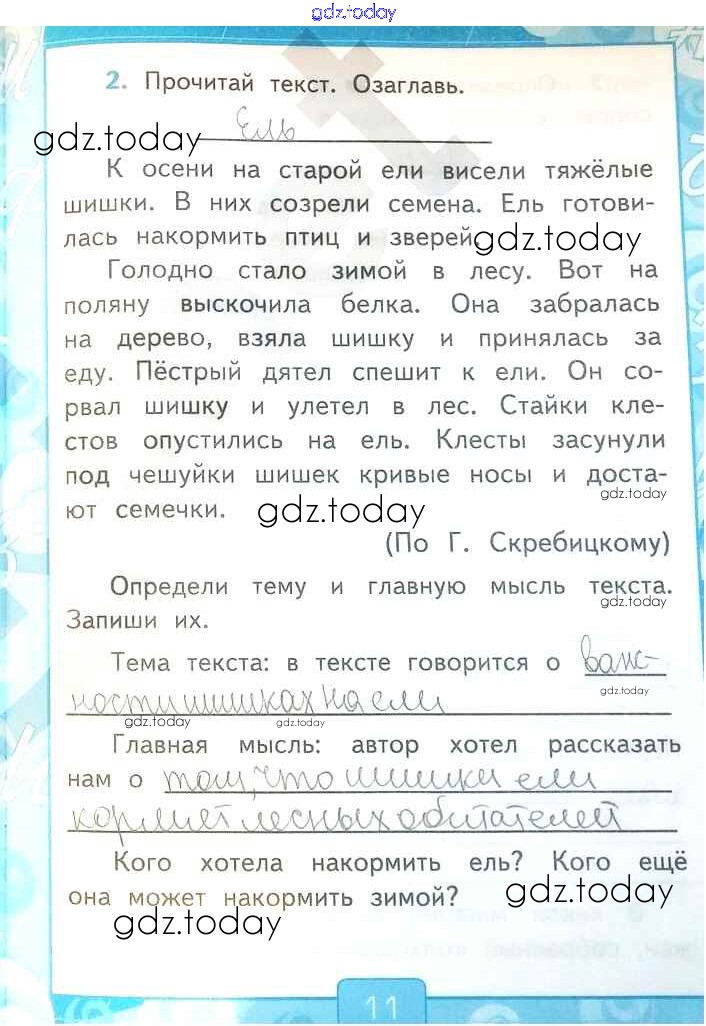 gdz.today
2. Прочитай текст. Озаглавь.
gdz.today Ель
К осени на старой ели висели тяжёлые
шишки. В них созрели семена. Ель готови-
лась накормить птиц и зверей.
gdz.today
Голодно стало зимой в лесу. Вот на
поляну выскочила белка. Она забралась
на дерево, взяла шишку и принялась за
еду. Пёстрый дятел спешит к ели. Он со-
рвал шишку и улетел в лес. Стайки кле-
стов опустились на ель. Клесты засунули
под чешуйки шишек кривые носы и доста-
gdz.today
ют семечки. gdz.today
(По Г. Скребицкому)
Определи тему и главную мысль текста.
gdz.today
Запиши их.
Тема текста: в тексте говорится о важ-
gdz.today
ности шишках на ели
gdz.today gdz.today
Главная мысль: автор хотел рассказать
нам о том, что шишки ели
кормит лесных обитателей
Кого хотела накормить ель? Кого ещё
она может накормить зимой? gdz.today
gdz.today
11